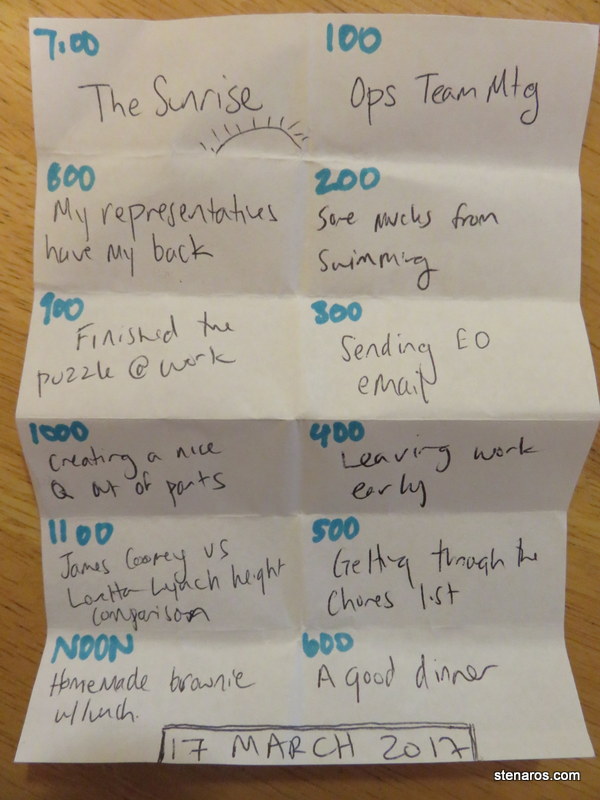 7:00
The Sunrise
800
My representatives
have my back
900
Finished the
puzzle @ work
1000
Creating a nice
Q out of parts
1100
James Comey vs
Loretta Lynch height
comparison
NOON
Homemade brownie
w/lunch.
100
Ops Team Mtg
200
Sore muscles from
Swimming
300
Sending EO
email
400
Leaving work
early
500
Getting through the
Chores list
600
A good dinner
17 MARCH 2017
stenaros.com